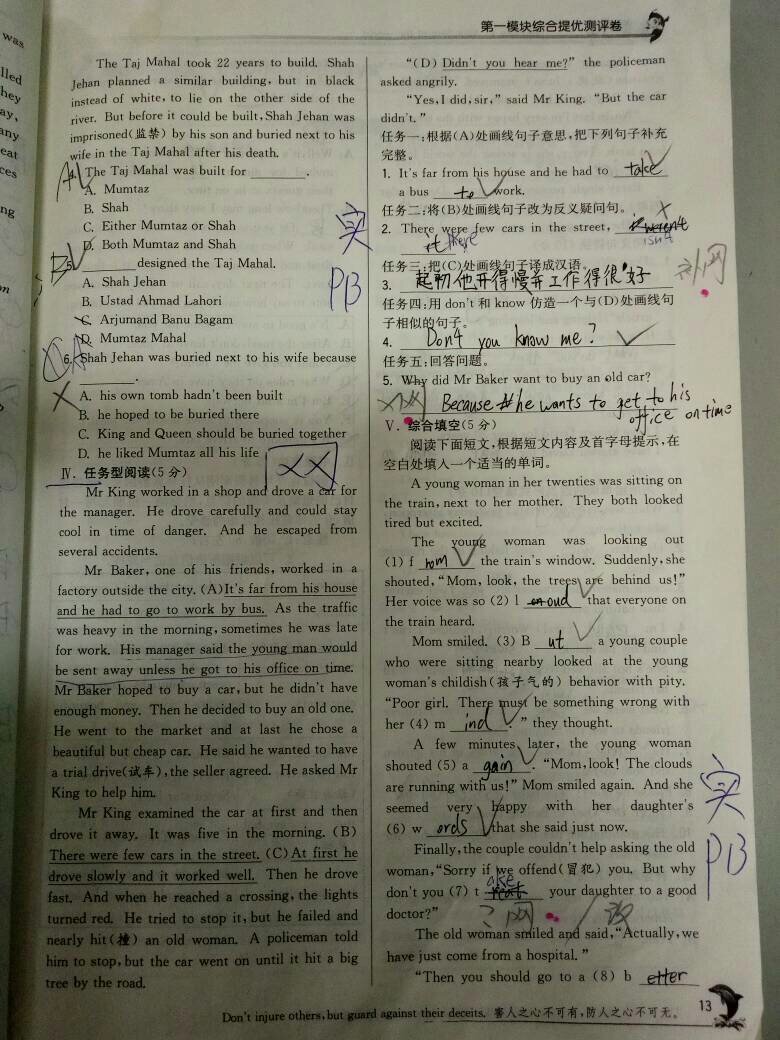 第一模块综合提优测评卷
was
lled
hey
ay,
any
eat
ces
ng
m
The Taj Mahal took 22 years to build. Shah
Jehan planned a similar building, but in black
instead of white, to lie on the other side of the
river. But before it could be built, Shah Jehan was
imprisoned(监禁) by his son and buried next to his
wife in the Taj Mahal after his death.
A 4. The Taj Mahal was built for ________.
A. Mumtaz
B. Shah
C. Either Mumtaz or Shah
D. Both Mumtaz and Shah
B 5. ________ designed the Taj Mahal.
A. Shah Jehan
B. Ustad Ahmad Lahori
C. Arjumand Banu Bagam
D. Mumtaz Mahal
6. Shah Jehan was buried next to his wife because
________.
A. his own tomb hadn't been built
B. he hoped to be buried there
C. King and Queen should be buried together
D. he liked Mumtaz all his life
实
PB
Ⅳ. 任务型阅读(5 分)
Mr King worked in a shop and drove a car for
the manager. He drove carefully and could stay
cool in time of danger. And he escaped from
several accidents.
Mr Baker, one of his friends, worked in a
factory outside the city. (A)It's far from his house
and he had to go to work by bus. As the traffic
was heavy in the morning, sometimes he was late
for work. His manager said the young man would
be sent away unless he got to his office on time.
Mr Baker hoped to buy a car, but he didn't have
enough money. Then he decided to buy an old one.
He went to the market and at last he chose a
beautiful but cheap car. He said he wanted to have
a trial drive(试车), the seller agreed. He asked Mr
King to help him.
Mr King examined the car at first and then
drove it away. It was five in the morning. (B)
There were few cars in the street. (C)At first he
drove slowly and it worked well. Then he drove
fast. And when he reached a crossing, the lights
turned red. He tried to stop it, but he failed and
nearly hit(撞) an old woman. A policeman told
him to stop, but the car went on until it hit a big
tree by the road.
“(D) Didn't you hear me?” the policeman
asked angrily.
“Yes, I did, sir,” said Mr King. “But the car
didn't.”
任务一:根据(A)处画线句子意思,把下列句子补充
完整。
1. It's far from his house and he had to take
a bus to work.
任务二:将(B)处画线句子改为反义疑问句。
2. There were few cars in the street, weren't
isn't
it there
任务三:把(C)处画线句子译成汉语。
3. 起初他开得慢并工作得很好
任务四:用 don't 和 know 仿造一个与(D)处画线句
子相似的句子。
4. Don't you know me?
任务五:回答问题。
5. Why did Mr Baker want to buy an old car?
Because he wants to get to his
office on time
Ⅴ. 综合填空(5 分)
阅读下面短文,根据短文内容及首字母提示,在
空白处填入一个适当的单词。
A young woman in her twenties was sitting on
the train, next to her mother. They both looked
tired but excited.
The young woman was looking out
(1) f rom the train's window. Suddenly, she
shouted, “Mom, look, the trees are behind us!”
Her voice was so (2) l oud that everyone on
the train heard.
Mom smiled. (3) B ut a young couple
who were sitting nearby looked at the young
woman's childish(孩子气的) behavior with pity.
“Poor girl. There must be something wrong with
her (4) m ind.” they thought.
A few minutes later, the young woman
shouted (5) a gain. “Mom, look! The clouds
are running with us!” Mom smiled again. And she
seemed very happy with her daughter's
(6) w ords that she said just now.
Finally, the couple couldn't help asking the old
woman, “Sorry if we offend(冒犯) you. But why
don't you (7) t ake your daughter to a good
doctor?”
The old woman smiled and said, “Actually, we
have just come from a hospital.”
“Then you should go to a (8) b etter
实
PB
13
Don't injure others, but guard against their deceits. 害人之心不可有,防人之心不可无。